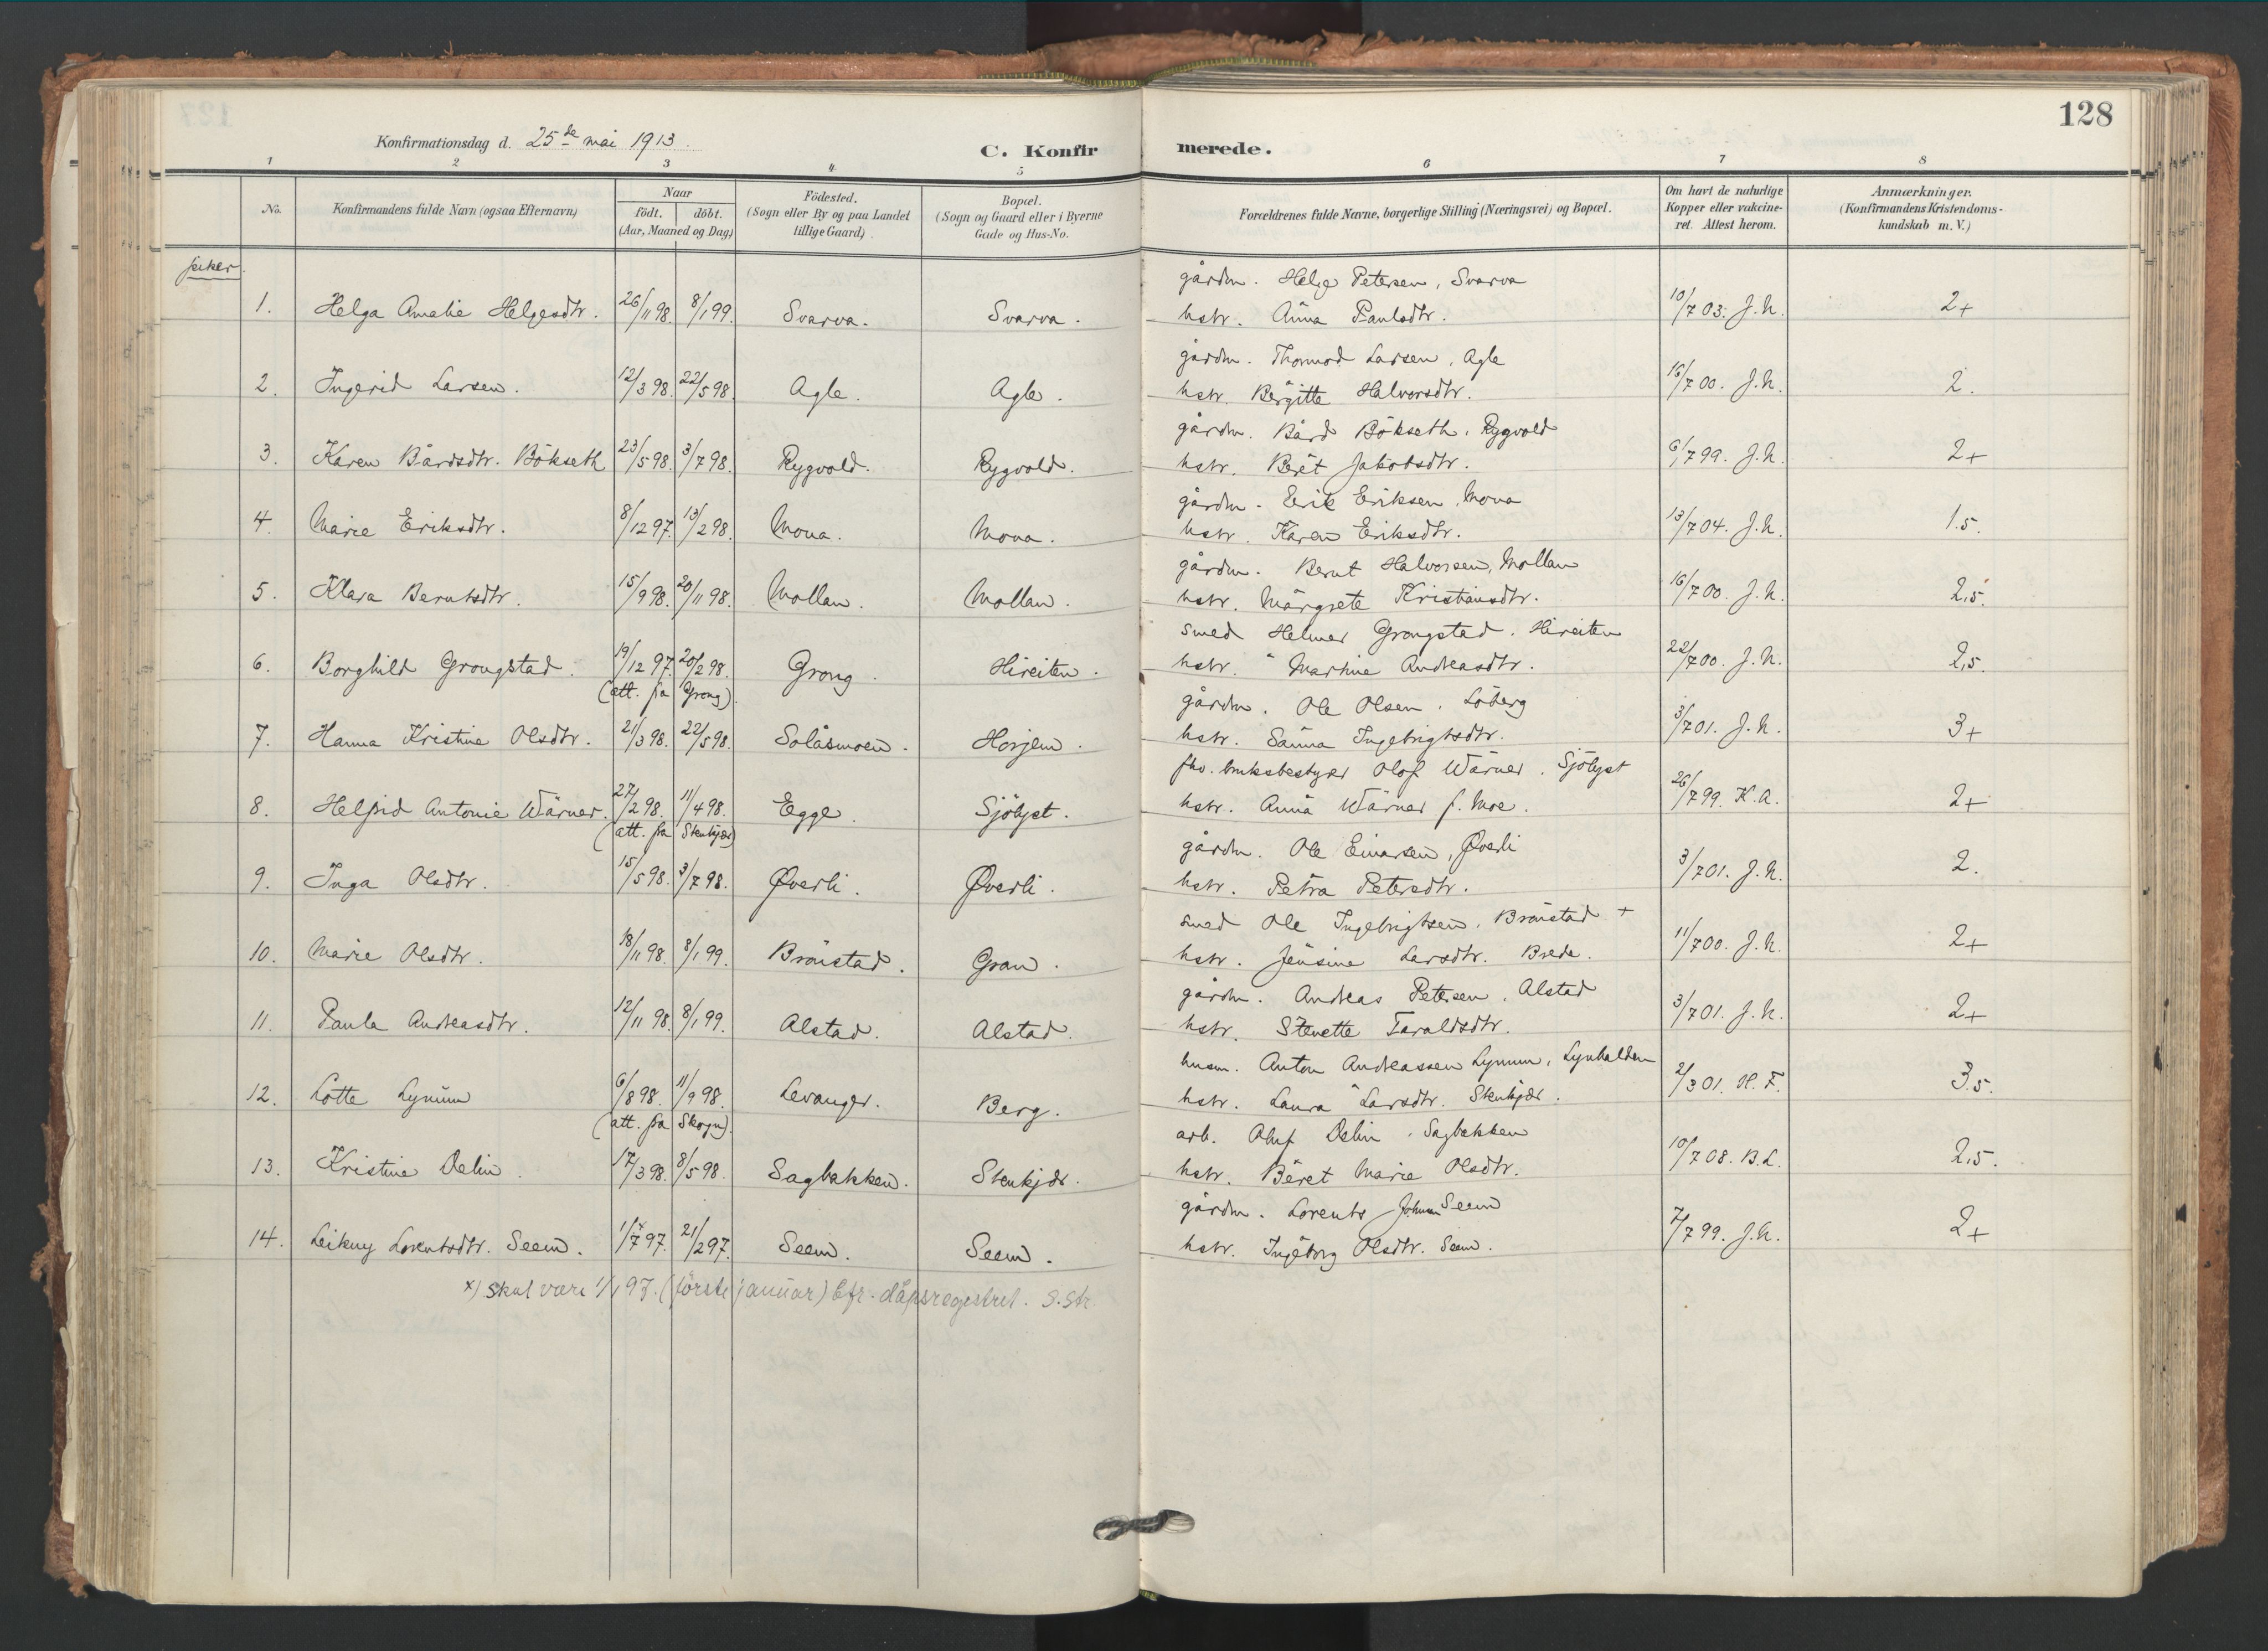 128
Konfirmationsdag d. 25de mai 1913.
C. Konfirmerede.
1 2 3 4 5 6 7 8
No.
Konfirmandens fulde Navn (ogsaa Efternavn)
Naar
födt. döbt.
(Aar, Maaned og Dag)
Födested.
(Sogn eller By og paa Landet
tillige Gaard)
Bopæl.
(Sogn og Gaard eller i Byerne
Gade og Hus-No.
Forældrenes fulde Navne, borgerlige Stilling (Næringsvei) og Bopæl.
Om havt de naturlige
Kopper eller vakcine-
ret. Attest herom.
Anmærkninger.
(Konfirmandens Kristendoms-
kundskab m. V.)
piker.
gårdm. Helge Petersen, Svarva
1. Helga Amalie Helgesdtr. 26/11 98. 8/1 99. Svarva. Svarva. hstr. Anna Paulsdtr. 10/7 03. J.N. 2+
gårdm. Thormod Larsen, Agle
2. Ingerid Larsen. 12/3 98. 22/5 98. Agle. Agle. hstr. Bergitte Halvorsdtr. 16/7 00. J.N. 2.
gårdm. Bård Bökseth, Rygvold
3. Karen Bårdsdtr. Bökseth 23/5 98. 3/7 98. Rygvold. Rygvold. hstr. Beret Jakobsdtr. 6/7 99. J.N. 2+
gårdm. Erik Eriksen, Moua
4. Marie Eriksdtr. 8/12 97. 13/2 98. Moua. Moua. hstr. Karen Eriksdtr. 13/7 04. J.N. 1.5.
gårdm. Bernt Halvorsen, Mollan
5. Klara Berntsdtr. 15/9 98. 20/11 98. Mollan. Mollan. hstr. Margrete Kristiansdtr. 16/7 00. J.N. 2,5.
smed Helmer Grongstad. Hireiten
6. Borghild Grongstad. 19/12 97. 20/2 98. Grong. Hireiten. hstr. Martine Andreasdtr. 22/7 00. J.N. 2,5.
(att. fra Grong)
gårdm. Ole Olsen, Löberg
7. Hanna Kristine Olsdtr. 21/3 98. 22/5 98. Solåsmoen. Horjem. hstr. Sanna Ingebrigtsdtr. 3/7 01. J.N. 3+
fhv. bruksbestyrer Olof Wärner. Sjölyst
8. Helfrid Antonie Wärner. 27/2 98. 11/4 98. Egge. Sjölyst. hstr. Anna Wärner f. Moe. 26/7 99. K.A. 2+
(att. fra Stenkjær)
gårdm. Ole Einarsen, Øverli
9. Inga Olsdtr. 15/5 98. 3/7 98. Øverli. Øverli. hstr. Petra Petersdtr. 3/7 01. J.N. 2.
smed Ole Ingebrigtsen. Brönstad +
10. Marie Olsdtr. 18/11 98. 8/1 99. Brönstad. Gran. hstr. Jensine Larsdtr. Brede. 11/7 00. J.N. 2+
gårdm. Andreas Petersen. Alstad
11. Paula Andreasdtr. 12/11 98. 8/1 99. Alstad. Alstad. hstr. Stenette Taraldsdtr. 3/7 01. J.N. 2+
husm. Anton Andreassen Lynum, Lynhalden
12. Lotte Lynum 6/8 98. 11/9 98. Levanger. Berg. hstr. Laura Larsdtr. Stenkjær. 2/3 01. H.F. 3.5.
(att. fra Skogn).
arb. Oluf Delin, Sagbakken
13. Kristine Delin. 17/3 98. 8/5 98. Sagbakken. Stenkjær. hstr. Beret Marie Olsdtr. 10/7 08. B.L. 2,5.
gårdm. Lorents Johnsen Seem
14. Leikny Lorentsdtr. Seem. 1/7 x 97. 21/2 97. Seem. Seem. hstr. Ingeborg Olsdtr. Seem. 7/7 99. J.N. 2+
x) skal være 1/1 97. (förste januar) Cfr. dåpsregistret. S. Str.